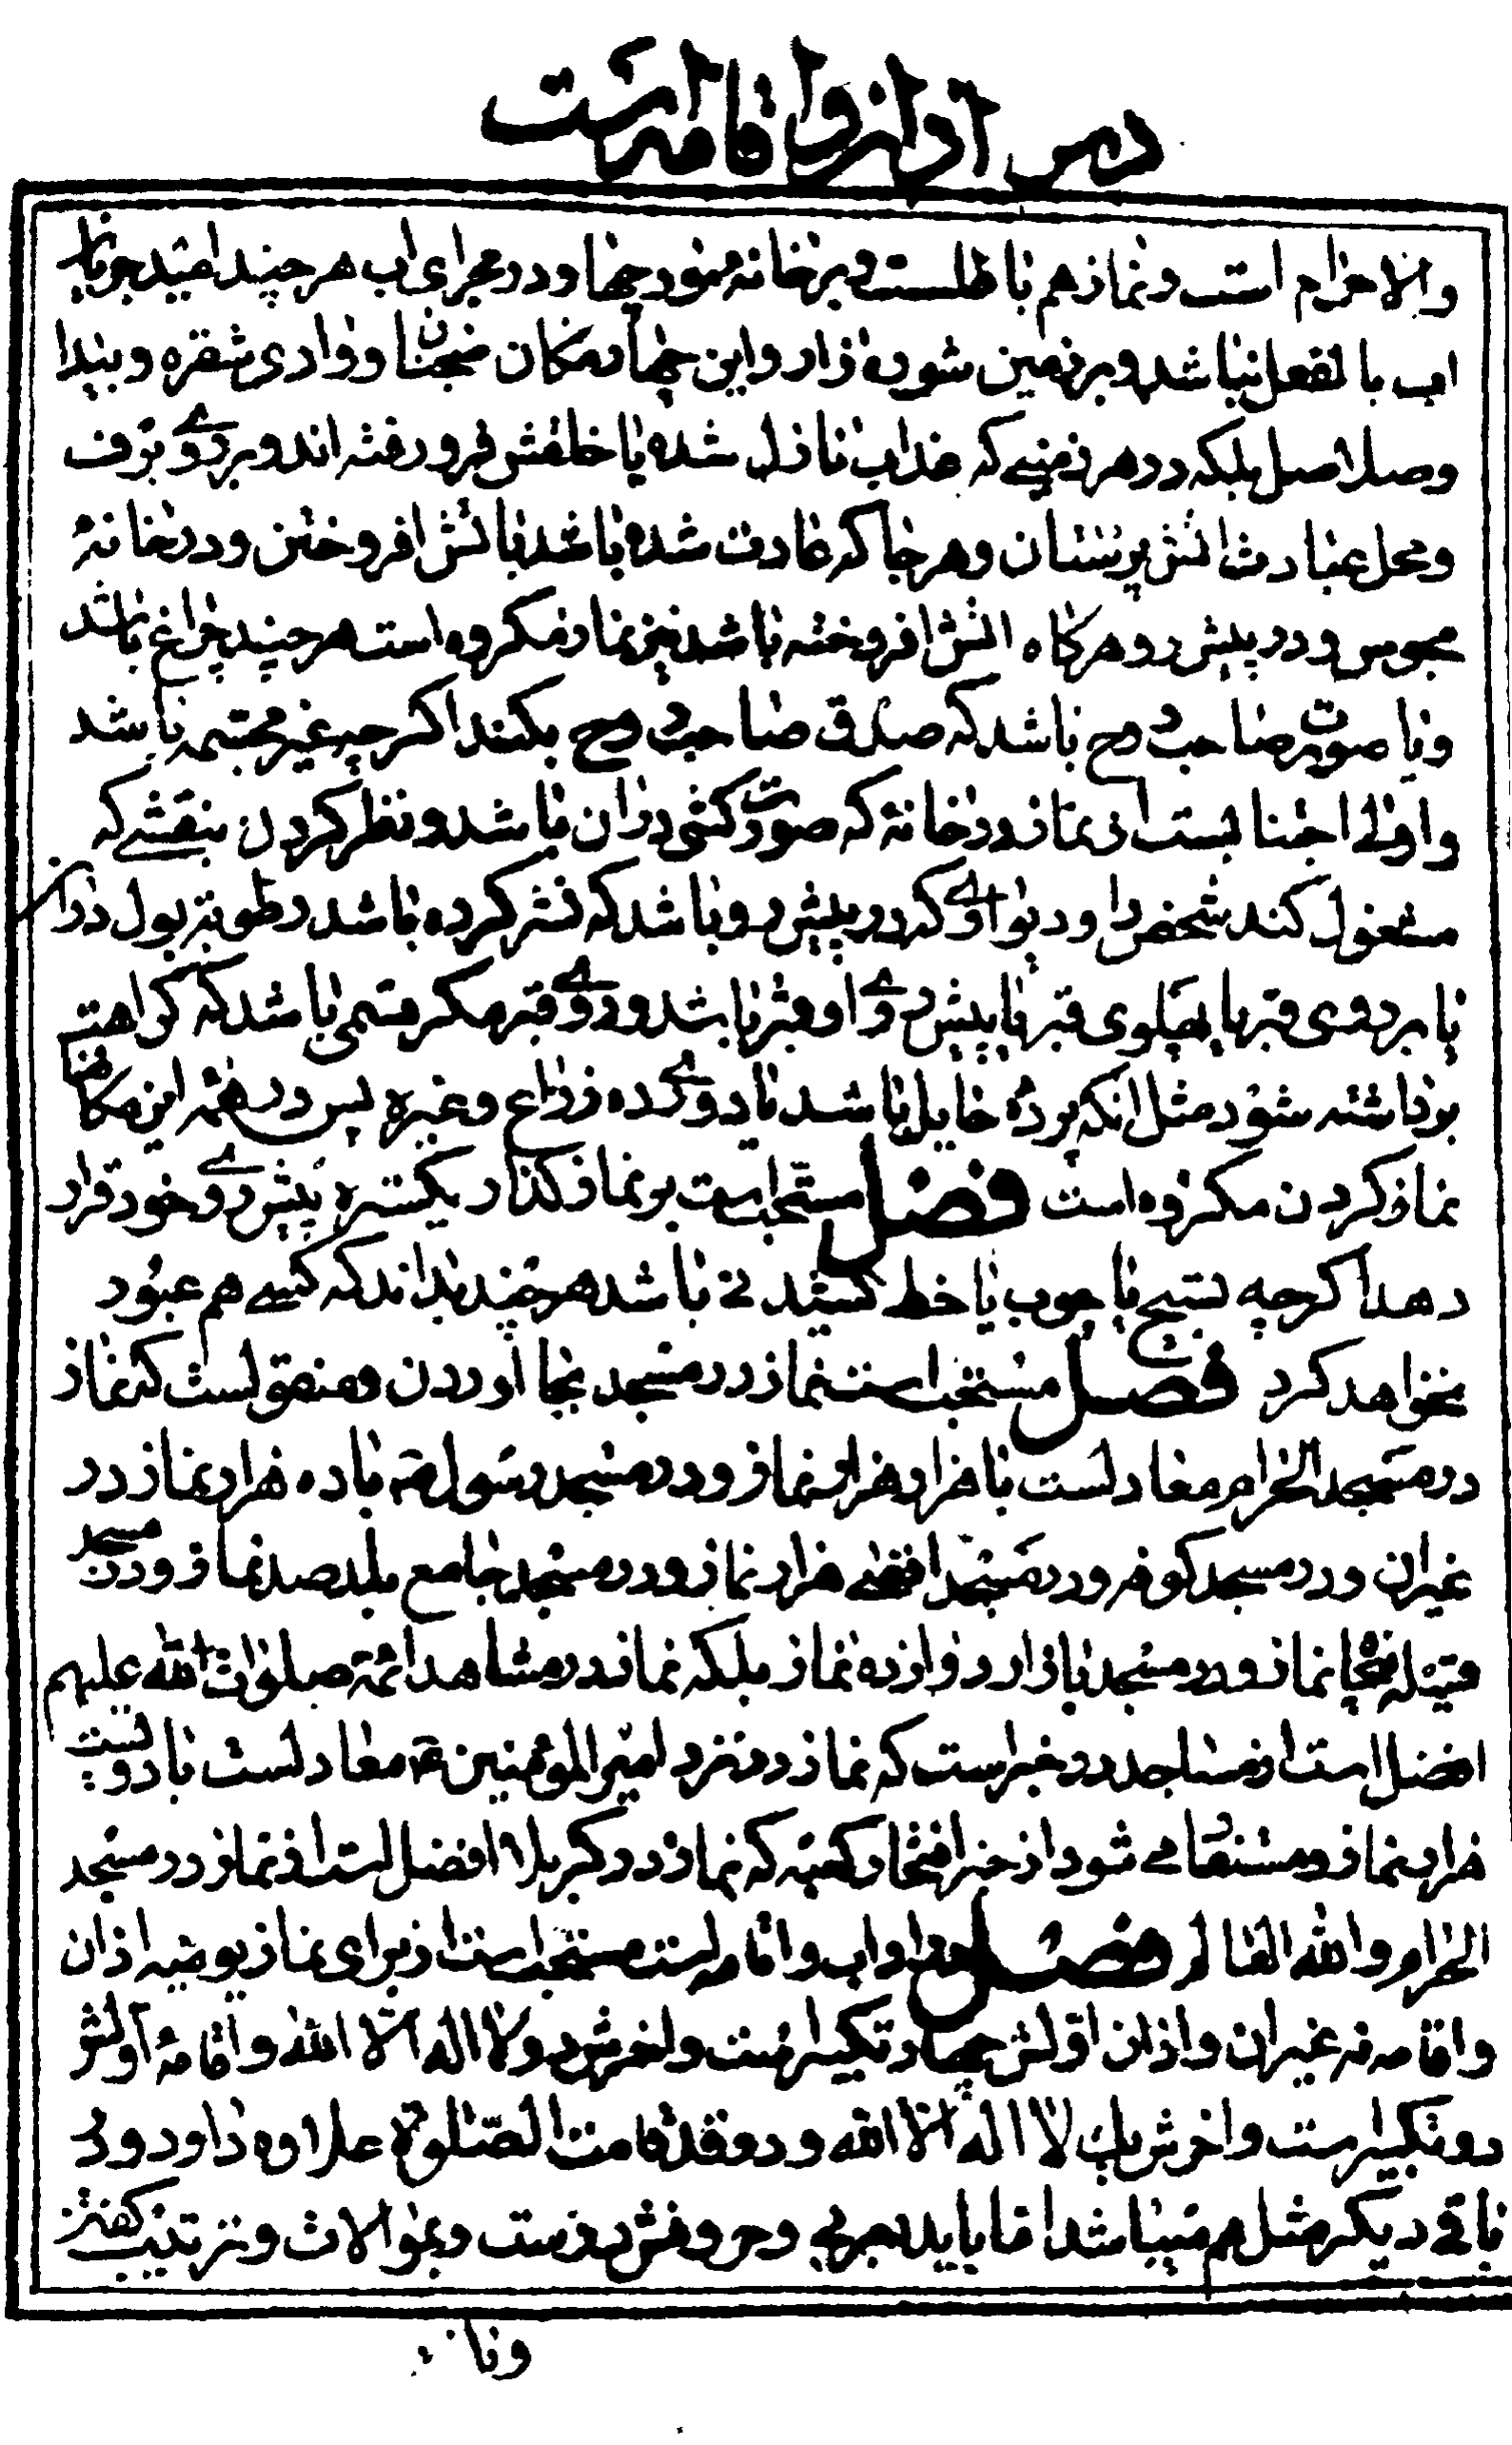 در آداب و اقامه است
والا حرام است و نماز هم باطلست و بر خانه مورچها و در مجرای اب هر چند امید جریان
اب بالفعل نباشد و بر زمین شوره زار و این چهار مکان ضجنان و وادی شقره و بیدا
و صلاصل بلکه در هر زمینے که عذاب نازل شده یا خلقش فرو رفته اند و بر روے برف
و محل عبادت اتش پرستان و هر جا که عادت شده باشد باتش افروختن و در خانهٔ
مجوس و در پیش رو هرکاه اتش افروخته باشد نیز نماز مکروه است هر چند چراغ باشد
و یا صورت صاحب روح باشد که صدق صاحب روح بکند اکر چه غیر مجسمه باشد
و اولی اجتنابست از نماز در خانهٔ که صورت کشی در ان باشد و نظر کردن بنقشے که
مشغول کند شخص را و دیوارے که در پیش رو باشد که نشر کرده باشد رطوبة بول در ان
یا بر روی قبر یا پهلوی قبر یا پیش روے او قبر باشد و روے قبر مکر قسمی باشد که کراهت
برداشته شود مثل انکه پرده حایل باشد یا دورے ده ذراع و غیره پس در همه این مکانها
نماز کردن مکروه است فصل مستحب است بر نماز کذار یکستره پیش روے خود قرار
دهد اکر چه تسبیح یا چوب یا خط کشیدنے باشد هر چند بداند که کسے هم عبور
نخواهد کرد فصل مستحب است نماز در مسجد بجا اوردن و منقولست که نماز
در مسجد الحرام معادلست با هزار هزار نماز و در مسجد رسول ص با ده هزار نماز در
غیر ان و در مسجد کوفه و در مسجد اقصے هزار نماز و در مسجد جامع بلد صد نماز و در مسجد
قبیله پنجاه نماز و در مسجد بازار دوازده نماز بلکه نماز در مشاهد ائمه صلوات الله علیهم
افضل است از مساجد و در خبر است که نماز در نزد امیر المؤمنین ع معادلست با دویست
هزار نماز و مستفاد مے شود از خبر افتخار کعبه که نماز در کربلا افضل است از نماز در مسجد
الحرام و الله العالم فصل در اداب و اقامه است مستحب است از برای نماز یومیه اذان
و اقامه نه غیر ان و اذان اولش چهار تکبیر است و اخرش دو لا اله الا الله و اقامهٔ اولش
دو تکبیر است و اخرش یک لا اله الا الله و دو قد قامت الصلوة علاوه دارد و در
باقی دیکر مثل هم میباشد اما باید بعربی و حروفش درست و بموالات و ترتیب کفتن
و با